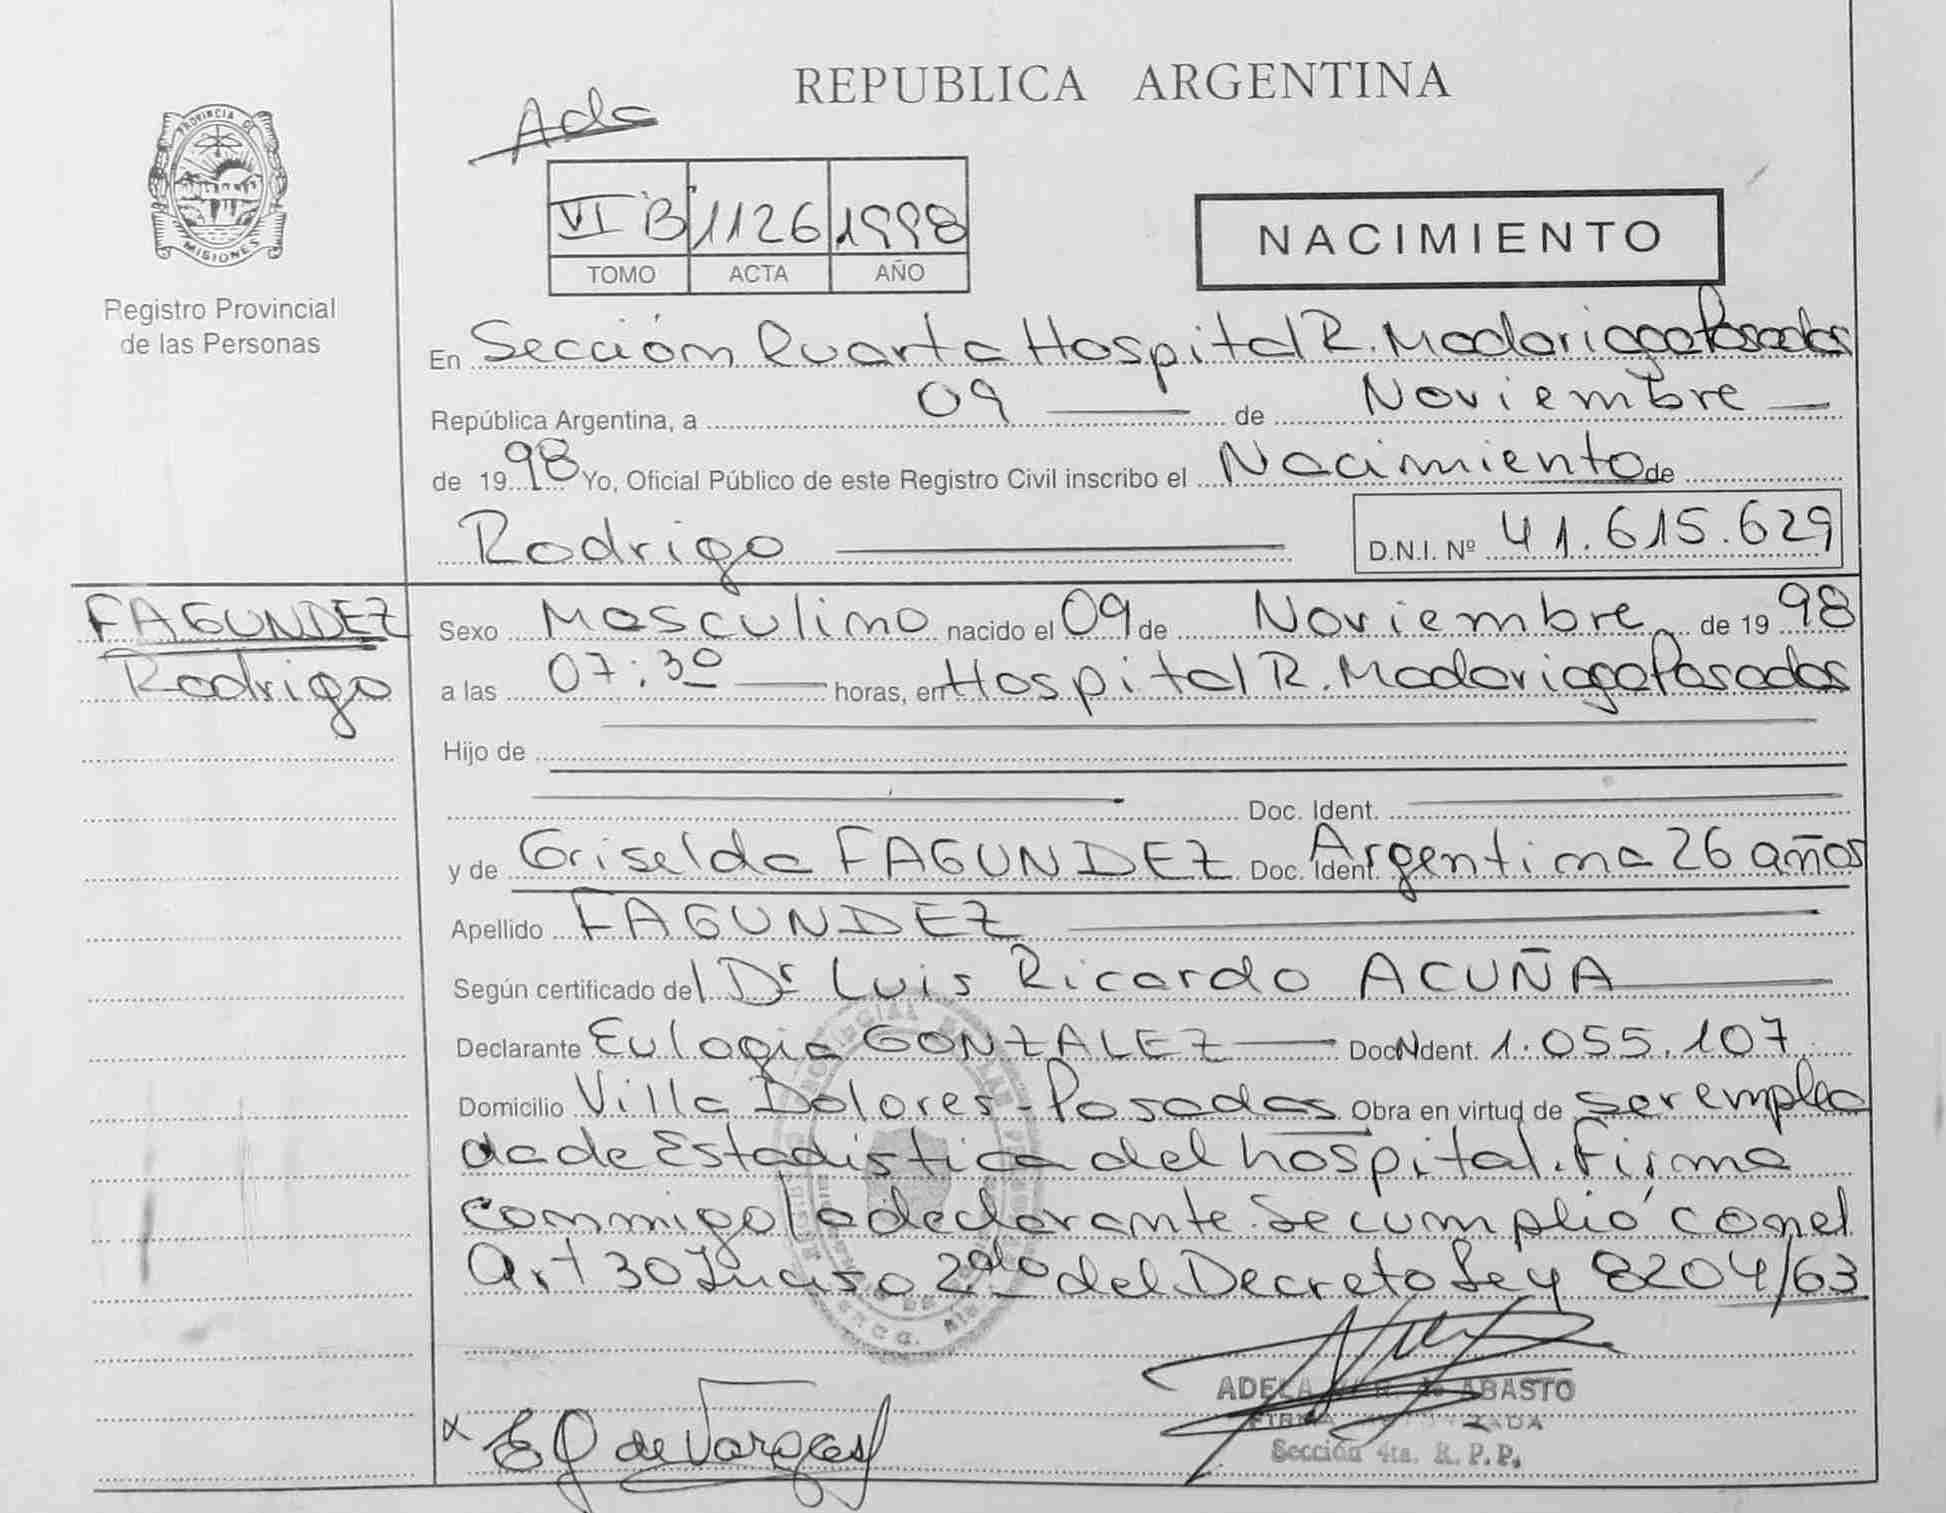 REPUBLICA ARGENTINA
PROVINCIA DE
MISIONES
Registro Provincial
de las Personas
VI B 1126 1998
TOMO ACTA AÑO
NACIMIENTO
En Sección Cuarta Hospital R. Madariaga Posadas
República Argentina, a 09 de Noviembre
de 1998 Yo, Oficial Público de este Registro Civil inscribo el Nacimiento de
Rodrigo D.N.I. Nº 41.615.629
FAGUNDEZ
Rodrigo
Sexo Masculino nacido el 09 de Noviembre de 1998
a las 07:30 horas, en Hospital R. Madariaga Posadas
Hijo de
Doc. Ident.
y de Griselda FAGUNDEZ Doc. Ident. Argentina 26 años
Apellido FAGUNDEZ
Según certificado del Dr Luis Ricardo ACUÑA
Declarante Eulogia GONZALEZ Doc. Ident. N 1.055.107
Domicilio Villa Dolores - Posadas Obra en virtud de ser emplea
da de Estadistica del hospital. Firma
conmigo la declarante. Se cumplió con el
Art 30 Inciso 2do del Decreto Ley 8204/63
ADELA ABASTO
FIRMA AUTORIZADA
Sección 4ta. R. P. P.
x E G de Vargas